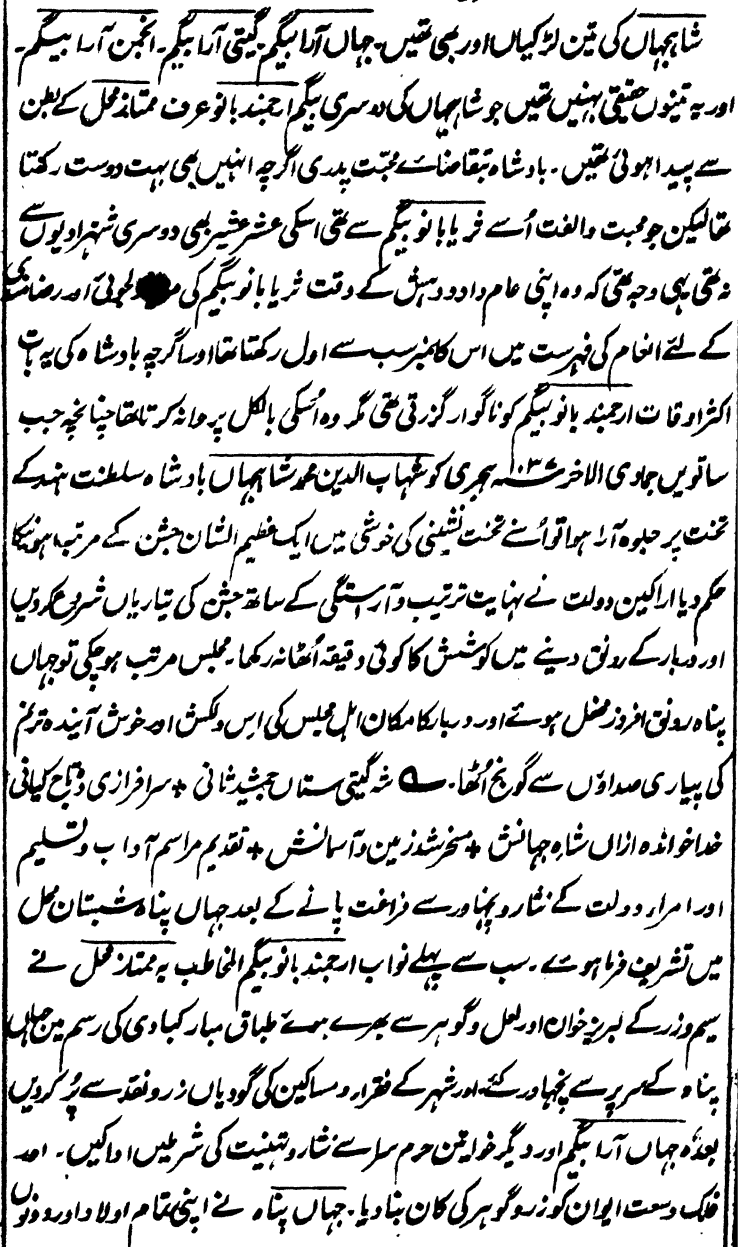 شاہجہاں کی تین لڑکیاں اور بھی تھیں۔ جہاں آرا بیگم۔ گیتی آرا بیگم۔ انجمن آرا بیگم۔
اور یہ تینوں حقیقی بہنیں تھیں جو شاہجہاں کی دوسری بیگم ارجمند بانو عرف ممتاز محل کے بطن
سے پیدا ہوئی تھیں۔ بادشاہ بتقاضاے محبت پدری اگرچہ انہیں بھی بہت دوست رکھتا
تھا لیکن جو محبت والفت اُسے ثریا بانو بیگم سے تھی اسکی عشر عشیر بھی دوسری شہزادیوں سے
نہ تھی یہی وجہ تھی کہ وہ اپنی عام داد و دہش کے وقت ثریا بانو بیگم کی دلجوئی اور رضامندی
کے لئے انعام کی فہرست میں اس کا نمبر سب سے اول رکھتا تھا اور اگرچہ بادشاہ کی یہ بات
اکثر اوقات ارجمند بانو بیگم کو ناگوار گزرتی تھی مگر وہ اُسکی بالکل پروا نہ کرتا تھا چنانچہ جب
ساتویں جمادی الاخر ۱۰۳۷ ہجری کو شہاب الدین محمد شاہجہاں بادشاہ سلطنت ہند کے
تخت پر جلوہ آرا ہوا تو اُسنے تخت نشینی کی خوشی میں ایک عظیم الشان جشن کے مرتب ہونیکا
حکم دیا اراکین دولت نے نہایت ترتیب و آراستگی کے ساتھ جشن کی تیاریاں شروع کردیں
اور دربار کے رونق دینے میں کوشش کا کوئی دقیقہ اُٹھا نہ رکھا۔ مجلس مرتب ہوچکی تو جہاں
پناہ رونق افروز محفل ہوئے اور دربار کا مکان اہل مجلس کی اس دلکش اور خوش آیندہ ترنم
کی پیاری صداؤں سے گونج اُٹھا۔ ؎ شہ گیتی ستاں جمشید ثانی + سرافرازی دہ تاج کیانی
خدا خواندہ ازاں شاہ جہانش + مسخر شد زمین و آسمانش + تقدیم مراسم آداب و تسلیم
اور امراء دولت کے نثار و نچھاور سے فراغت پانے کے بعد جہاں پناہ شبستان محل
میں تشریف فرما ہوے۔ سب سے پہلے نواب ارجمند بانو بیگم المخاطب بہ ممتاز محل نے
سیم و زر کے لبریز خوان اور لعل و گوہر سے بھرے ہوے طباق مبارکبادی کی رسم میں جہاں
پناہ کے سر پر سے نچھاور کئے اور شہر کے فقراء و مساکین کی گودیاں زر و نقد سے پُر کردیں
بعدہٗ جہاں آرا بیگم اور دیگر خواتین حرم سرا سے نثار و تہنیت کی شرطیں ادا کیں۔ اور
فلک وسعت ایوان کو زر و گوہر کی کان بنا دیا۔ جہاں پناہ نے اپنی تمام اولاد اور دونوں